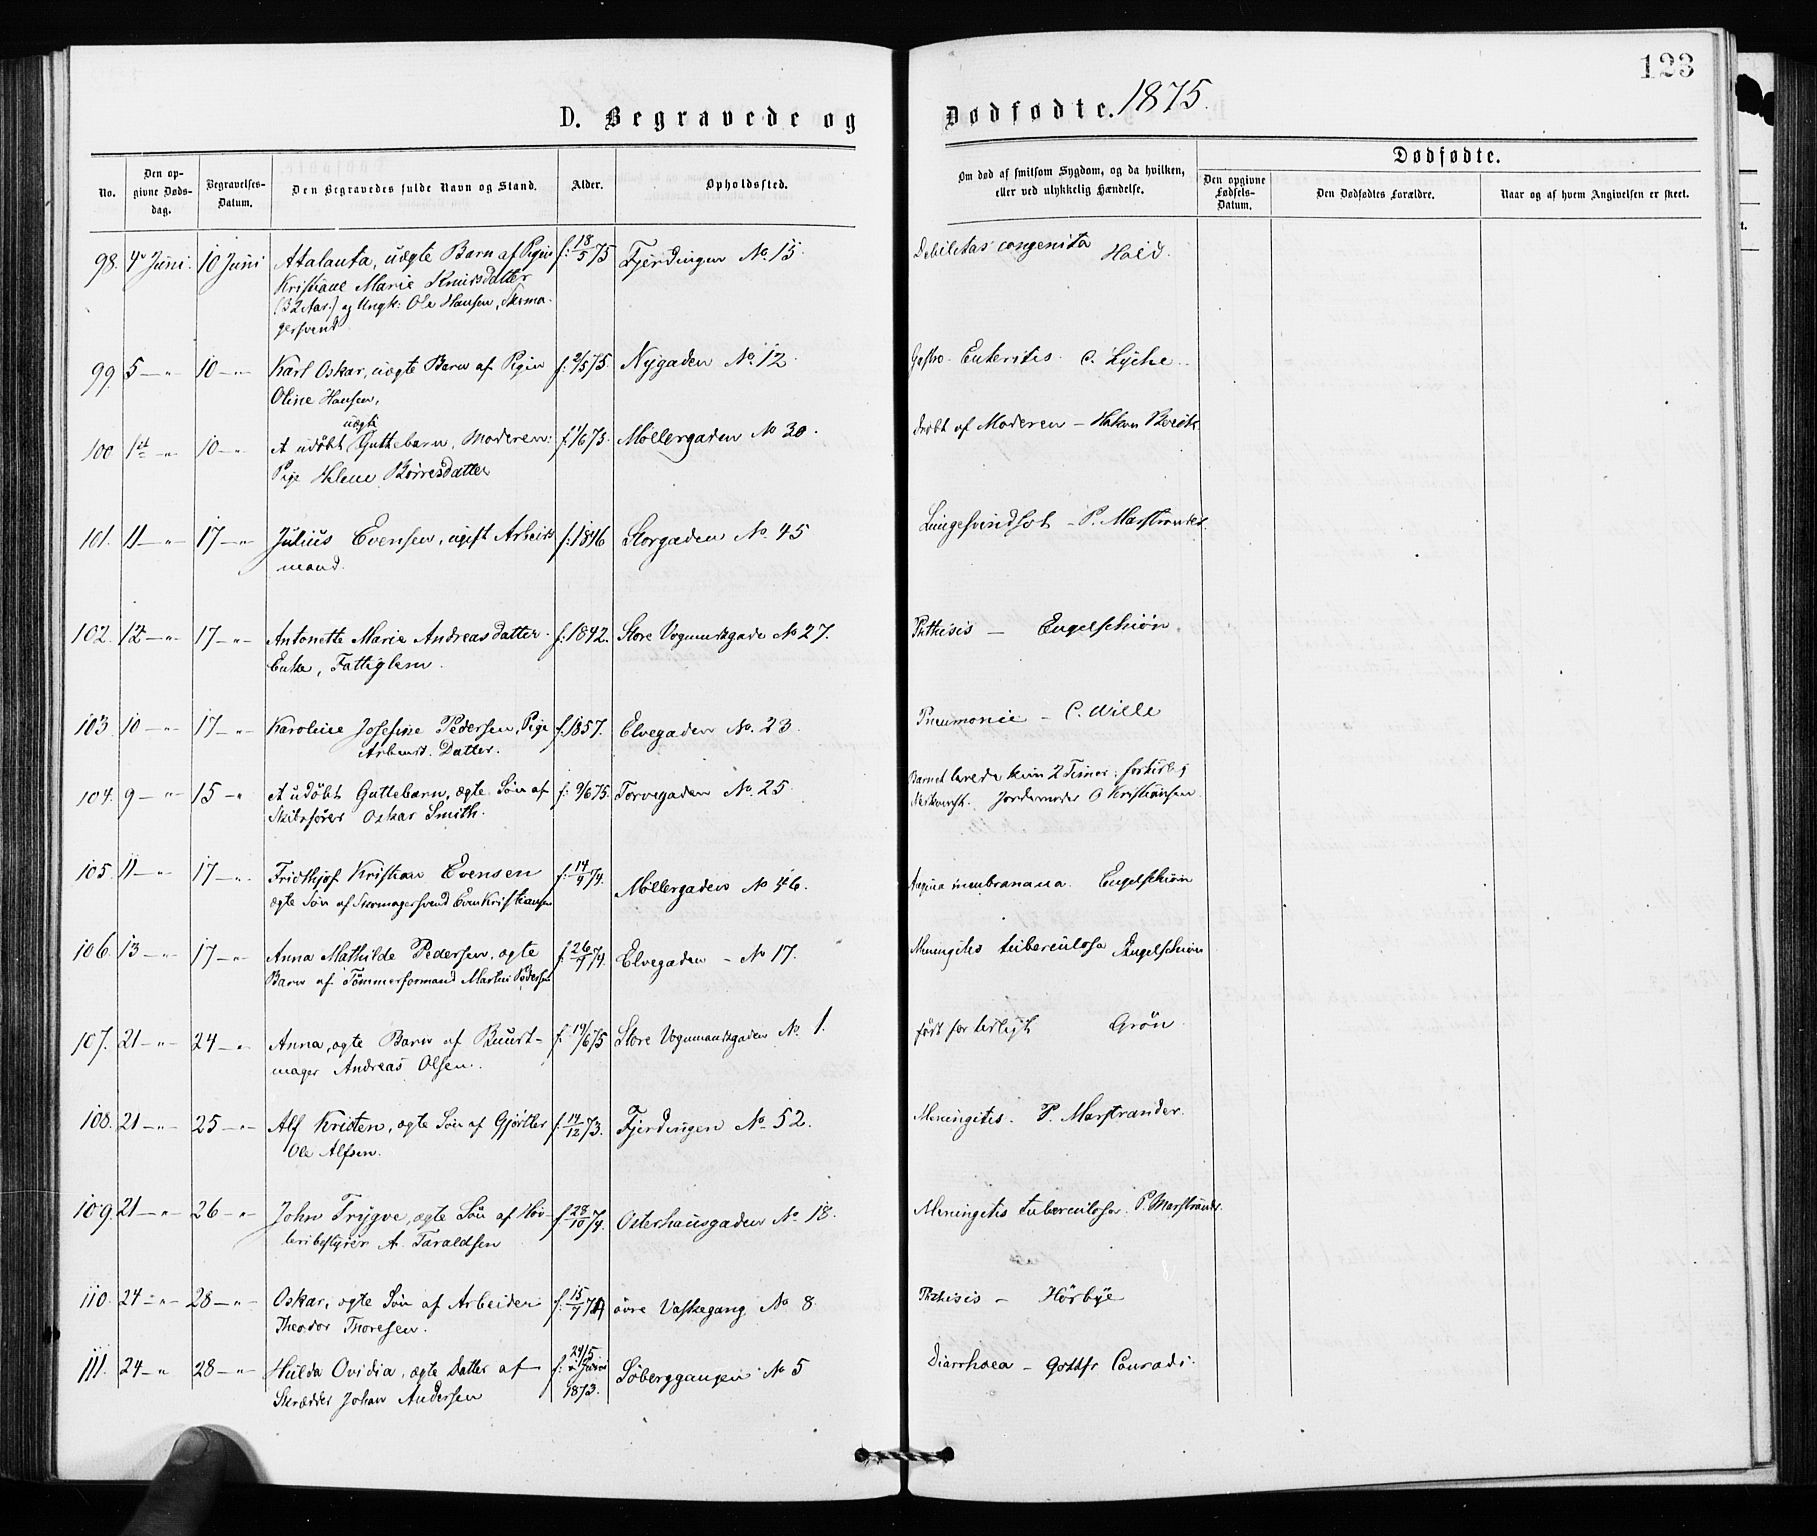 123
D. Begravede og Dødfødte. 1875.
No.
Den opgivne Dødsdag.
Begravelses-Datum.
Den Begravedes fulde Navn og Stand.
Alder.
Opholdssted.
Om død af smitsom Sygdom, og da hvilken, eller ved ulykkelig Hændelse.
Dødfødte.
Den opgivne Fødsels-Datum.
Den Dødfødtes Forældre.
Naar og af hvem Angivelsen er skeet.
98. 4de Juni. 10 Juni Atalanta, uægte Barn af Pigen f: 18/5 75 Fjerdingen No. 15. Debilitas congenita Hald.
Kristiane Marie Knudsdatter
(32 Aar) og Ungk: Ole Hansen, Skoma-
gersvend.
99. 5 — " 10 — " Karl Oskar, uægte Barn af Pigen f: 2/5 75. Nygaden No. 12. Gastro-Enteritis. C. Lyche.
Oline Hansen,
uægte
100 1st — " 10 — " Et udøbt Guttebarn, Moderen: f 1/6 75. Møllergaden No 30. Dræbt af Moderen —
Pige Helene Børresdatter
101. 11 — " 17 — " Julius Evensen, ugift Arbeids f: 1846 Storgaden No. 45 Lungesvindsot — P. Marstrander.
mand.
102. 12 — " 17 — " Antonette Marie Andreasdatter. f: 1842. Store Vognmandsgade No 27. Phthisis — Engelschiøn.
Enke, Fattiglem.
103 10 — " 17 — " Karoline Josefine Pedersen, Pige f. 1857. Elvegaden No. 23. Pneumonie — C. Wille
Arbeidsm. Datter.
104. 9 — " 15 — " Et udøbt Guttebarn, ægte Søn af f: 9/6 75. Torvegaden No. 25. Barnet levede kun 2 Timer: fortidlig
Skibsfører Oskar Smith. Nedkomst. Jordemoder O Kristiansen.
105. 11 — " 17 — " Fridthjof Kristian Evensen f: 14/9 74. Møllergaden No 46. Angina membranacea. Engelschiøn
ægte Søn af Skomagersvend Even Kristiansen
106. 13 — " 17 — " Anna Mathilde Pedersen, ægte f: 26/9 74. Elvegaden — No 17. Meningitis tuberculosa Engelschiøn
Barn af Tømmerformand Martin Pedersen
107. 21 — " 24 — " Anna, ægte Barn af Bundt- f. 19/6 75 Store Vognmandsgaden No 1. født for tidligt Grøn.
mager Andreas Olsen.
108. 21 — " 25 — " Alf Kristen, ægte Søn af Gjørtler f. 14/12 73. Fjerdingen No. 52. Meningitis. P. Marstrander.
Ole Alfsen.
109. 21 — " 26 — " John Trygve, ægte Søn af Høv- f. 28/10 74. Osterhausgaden No 18. Meningitis tuberculosa. P. Marstrander.
leribestyrer A. Taraldsen
110. 24 — " 28 — " Oskar, ægte Søn af Arbeider f. 15/7 74 øvre Vaskegang No 8. Phthisis — Hørbye
Theodor Thoresen.
111. 24 — " 28 — " Hulda Ovidia, ægte Datter af f: 24/5 1873. Søberggangen No 5 Diarrhoea — Gottfr Conradi.
Skrædder Johan Andersen